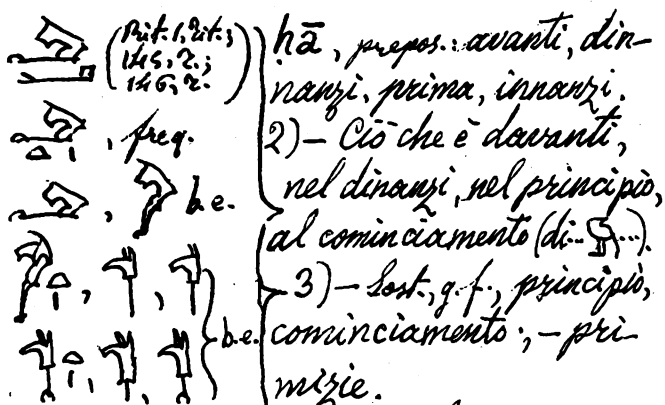 (Rit. 1, tit.;
145, 2.;
146, 2.
, freq.
b.e.
b.e.
ḥā, prepos.: avanti, din-
nanzi, prima, innanzi.
2) — Ciò che è davanti,
nel dinanzi, nel principio,
al cominciamento (di... ...).
3) — Sost., g. f., principio,
cominciamento; — pri-
mizie.